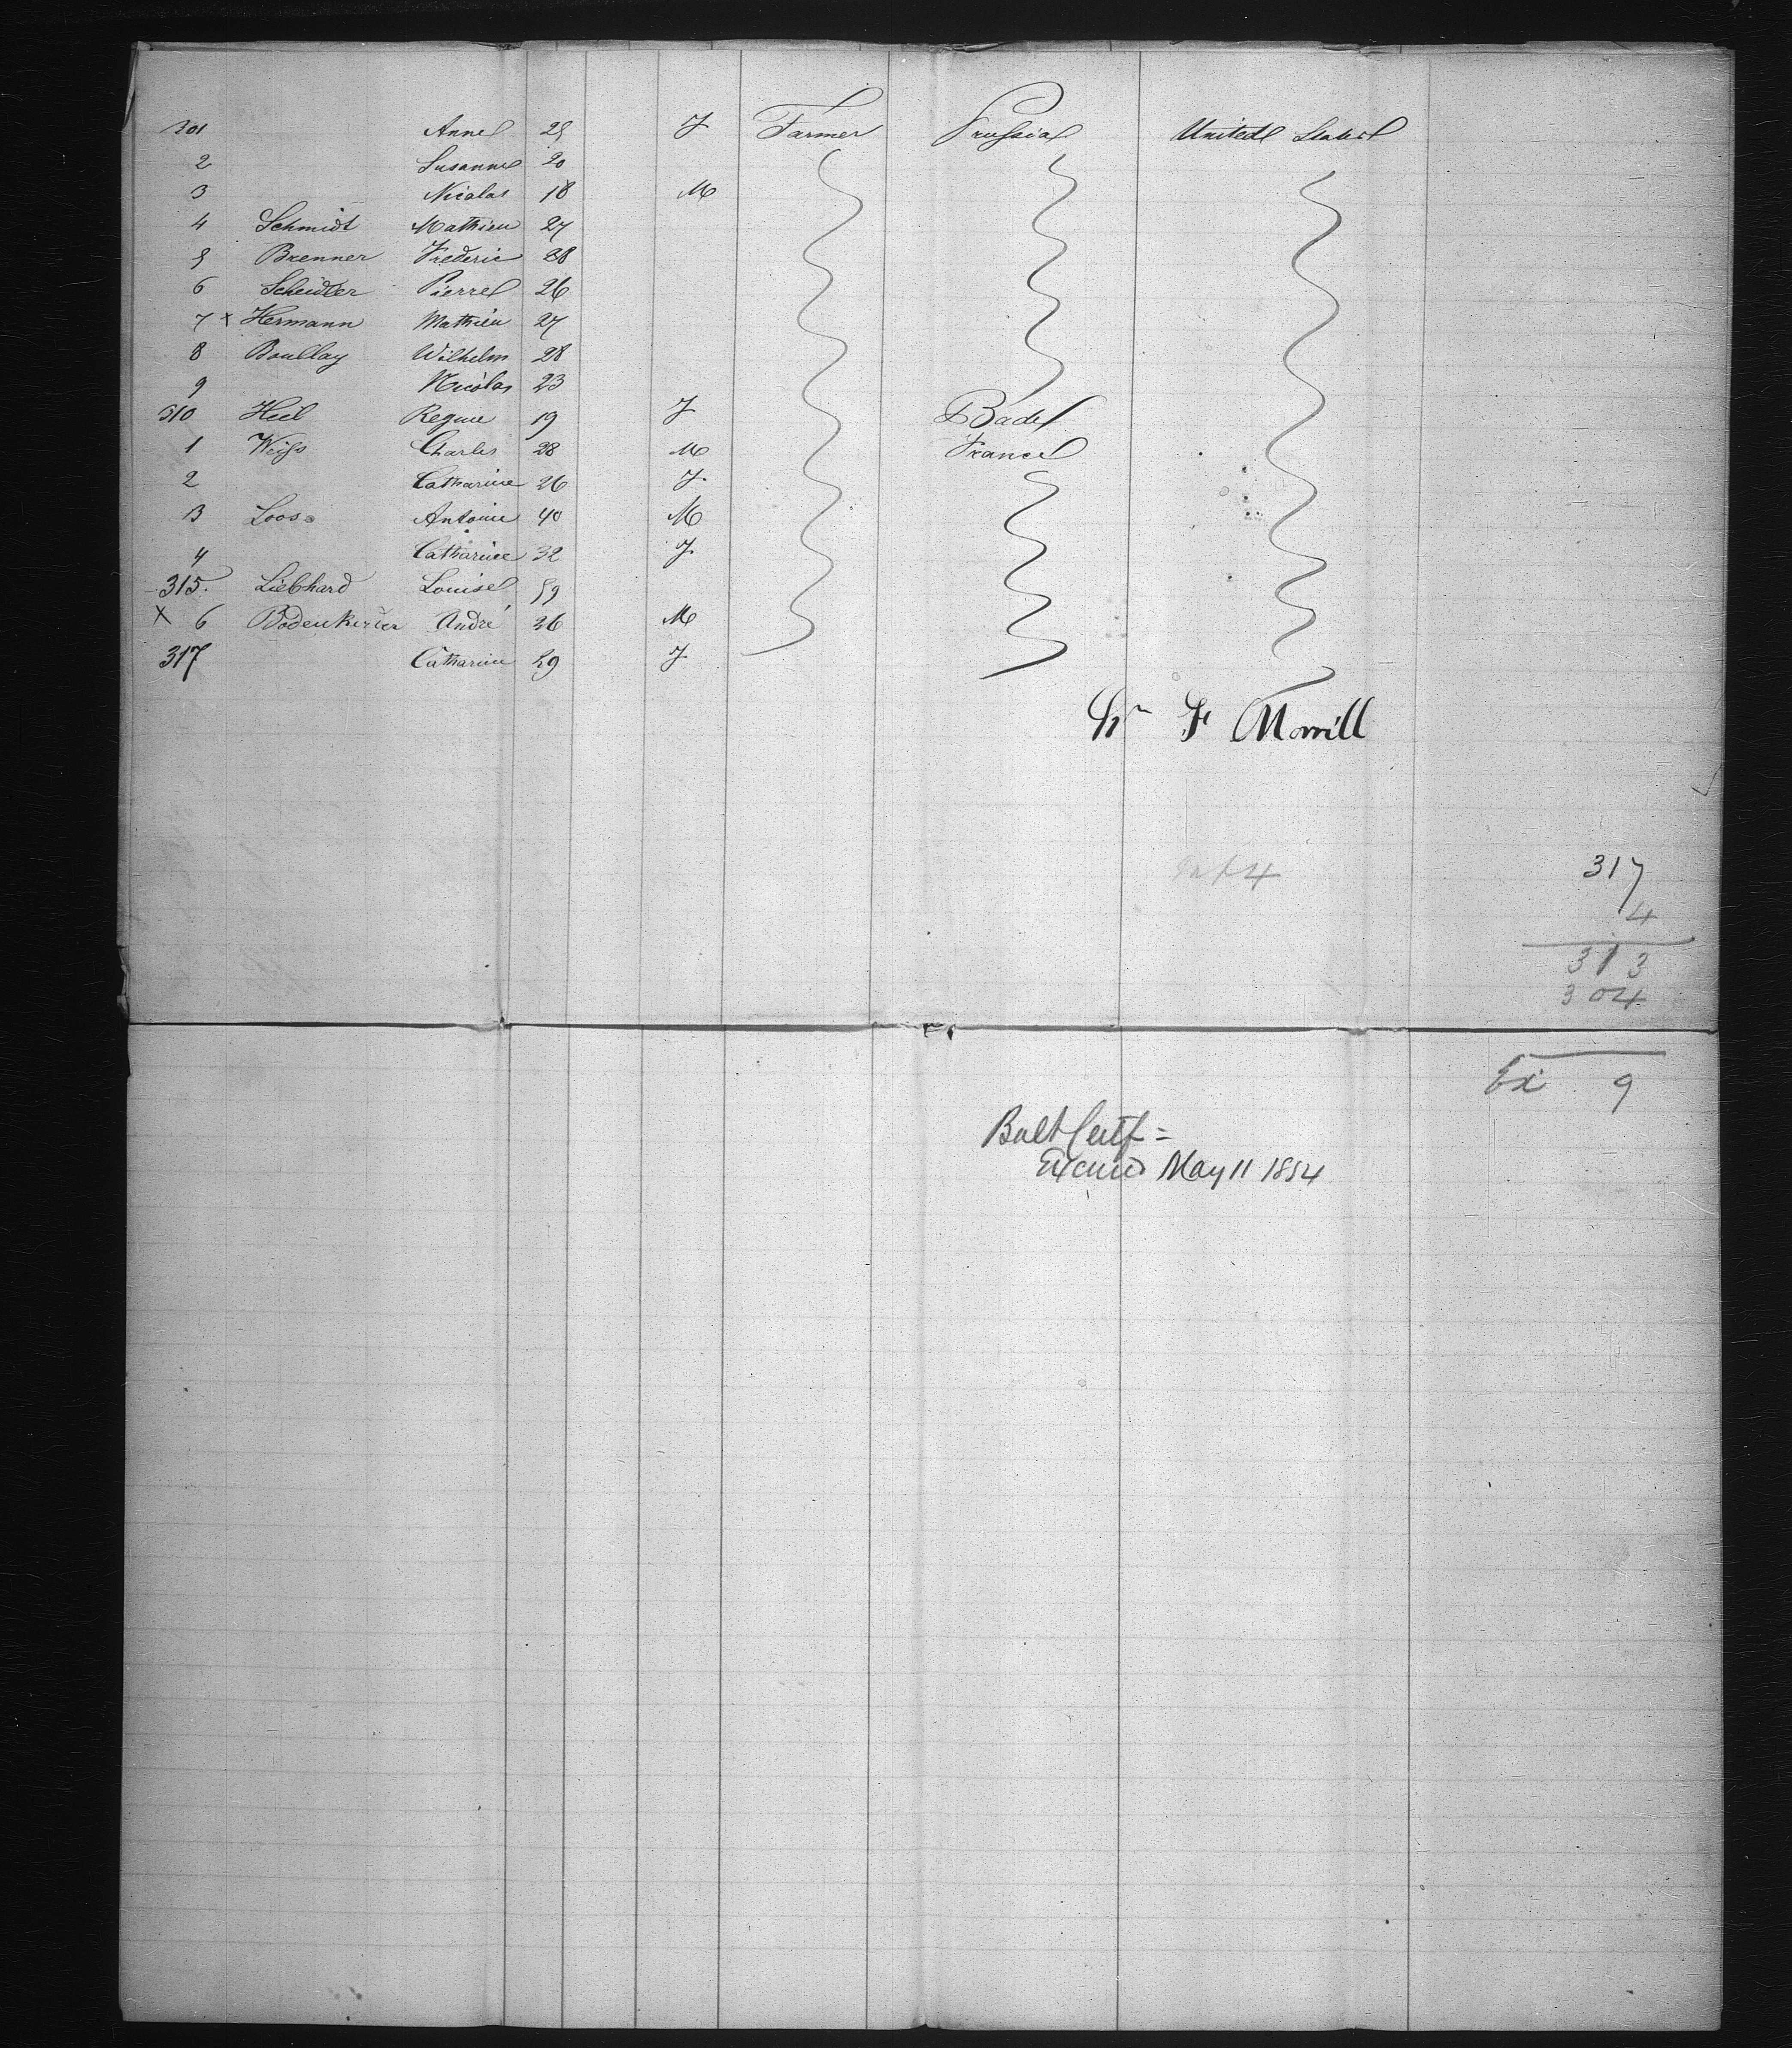 301 Anne 25 F Farmer Prussia United States
2 Susanne 20
3 Nicolas 18 M
4 Schmidt Mathieu 27
5 Brenner Frederic 28
6 Scheidler Pierre 26
7 x Hermann Mathieu 27
8 Boullay Wilhelm 28
9 Nicolas 23
310 Heil Regine 19 F Bade
1 Weiss Charles 28 M France
2 Catharine 26 F
3 Loos Antoine 40 M
4 Catharine 32 F
315. Liebhard Louise 59
x 6 André 26 M
317 Catharine 29 F
Wm F Morrill
317
Inf 4
4
313
304
Ex 9
Balt Certf =
May 11 1854